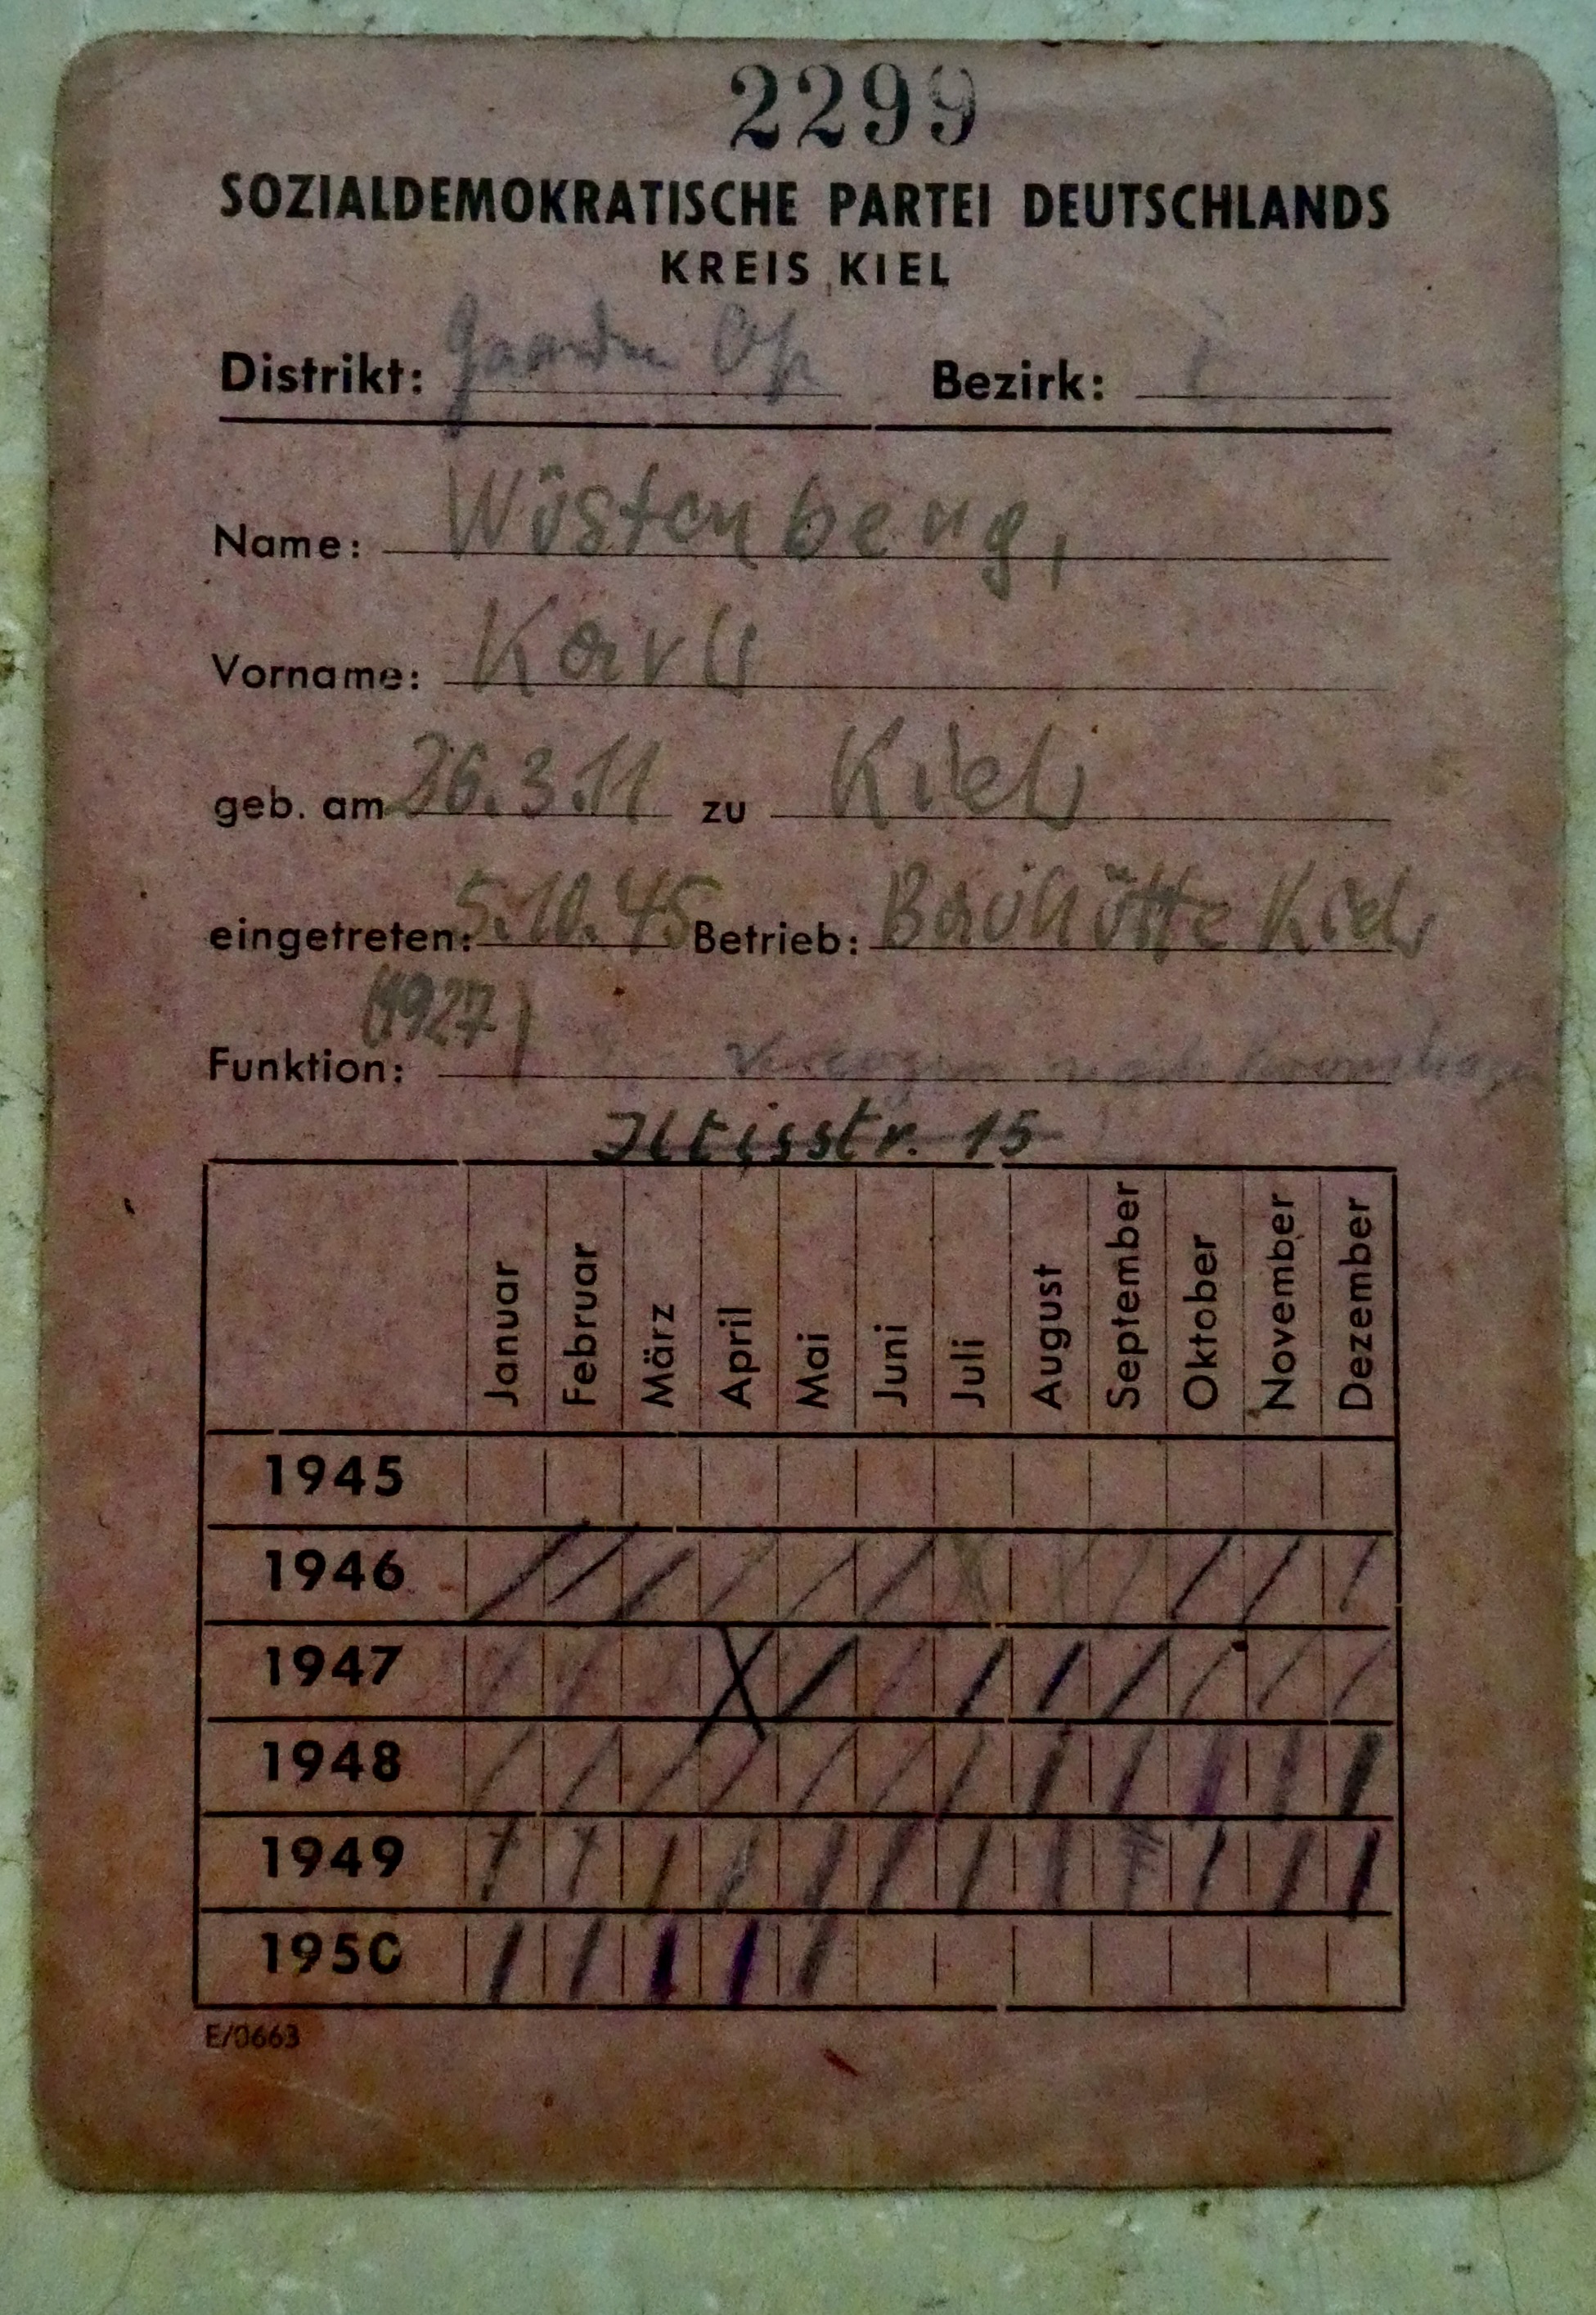 2299
SOZIALDEMOKRATISCHE PARTEI DEUTSCHLANDS
KREIS KIEL
Distrikt: Gaarden Bezirk:
Name: Wüstenberg,
Vorname: Karl
geb. am 26.3.11 zu Kiel
eingetreten: 5.10.45 Betrieb: Bauhütte Kiel
(1927)
Funktion: Verzogen nach Kronshagen
Iltisstr. 15
Januar Februar März April Mai Juni Juli August September Oktober November Dezember
1945
1946
1947
1948
1949
1950
E/0663